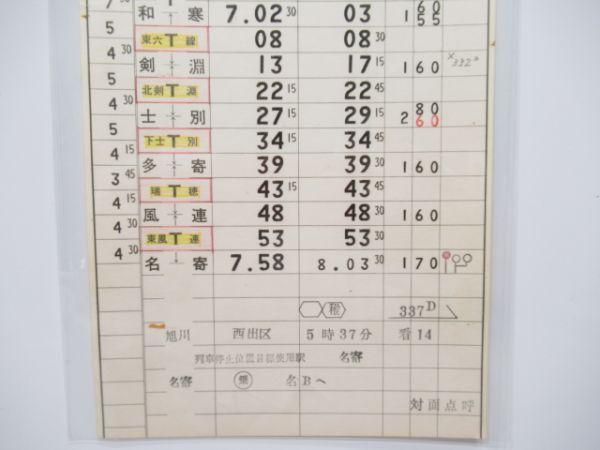 和寒 7.02 30 03 1 60 55
5
東六 T 線 08 08 30
5
剣淵 13 17 15 160 332
4 30
北剣 T 淵 22 15 22 45
5
士別 27 15 29 15 2 80 60
4 30
下士 T 別 34 15 34 45
4 15
多寄 39 39 30 160
3 45
瑞 T 穂 43 15 43 45
4 15
風連 48 48 30 160
4 30
東風 T 連 53 53 30
4 30
名寄 7.58 8.03 30 170
337D
旭川 西出区 5時37分 着14
列車停止位置目標使用駅 名寄
名寄 乗 名Bへ
対面点呼